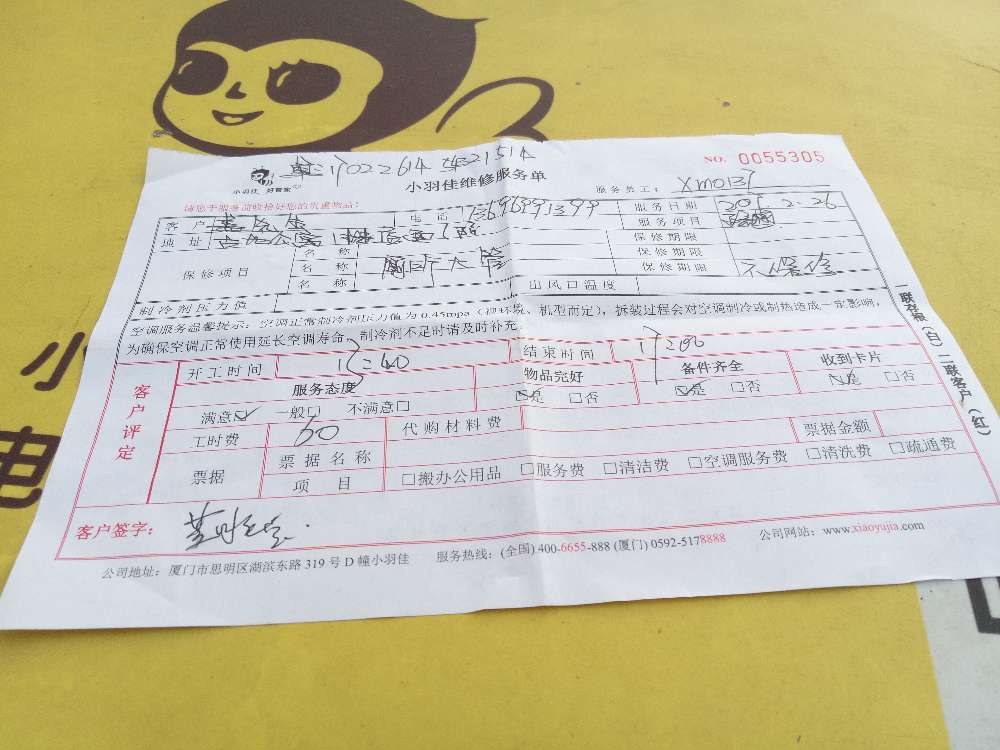 NO. 0055305
17022614 21514
小羽佳 好管家
小羽佳维修服务单
服务员工: XM0137
请您于服务前收拾好您的贵重物品:
客户
电话
服务日期 2.26
地址
服务项目
保修项目
名称
保修期限
名称
保修期限
名称
保修期限 不保修
制冷剂压力值
出风口温度
空调服务温馨提示:空调正常制冷剂压力值为0.45mpa(视环境、机型而定),拆装过程会对空调制冷或制热造成一定影响,
为确保空调正常使用延长空调寿命,制冷剂不足时请及时补充。
客户评定
开工时间
结束时间
服务态度
物品完好
备件齐全
收到卡片
满意☑ 一般□ 不满意□
☑是 □否
☑是 □否
☑是 □否
工时费
代购材料费
票据金额
票据
票据名称
项目
□搬办公用品 □服务费 □清洁费 □空调服务费 □清洗费 □疏通费
客户签字:
公司地址:厦门市思明区湖滨东路319号D幢小羽佳 服务热线:(全国)400-6655-888 (厦门)0592-5178888 公司网站:www.xiaoyujia.com
一联存根(白)二联客户(红)
小
电